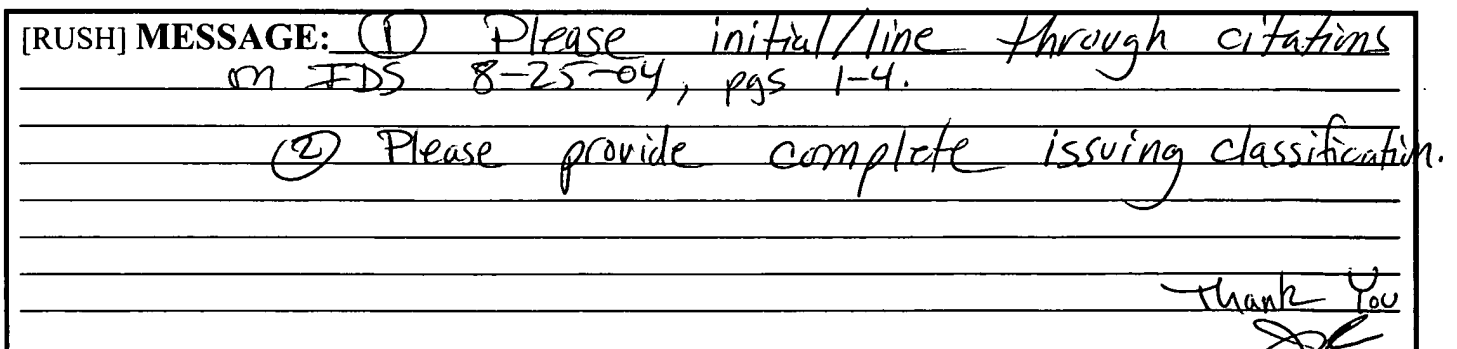 [RUSH] MESSAGE: ① Please initial/line through citations
on IDS 8-25-04, pgs 1-4.
② Please provide complete issuing classification.
Thank You